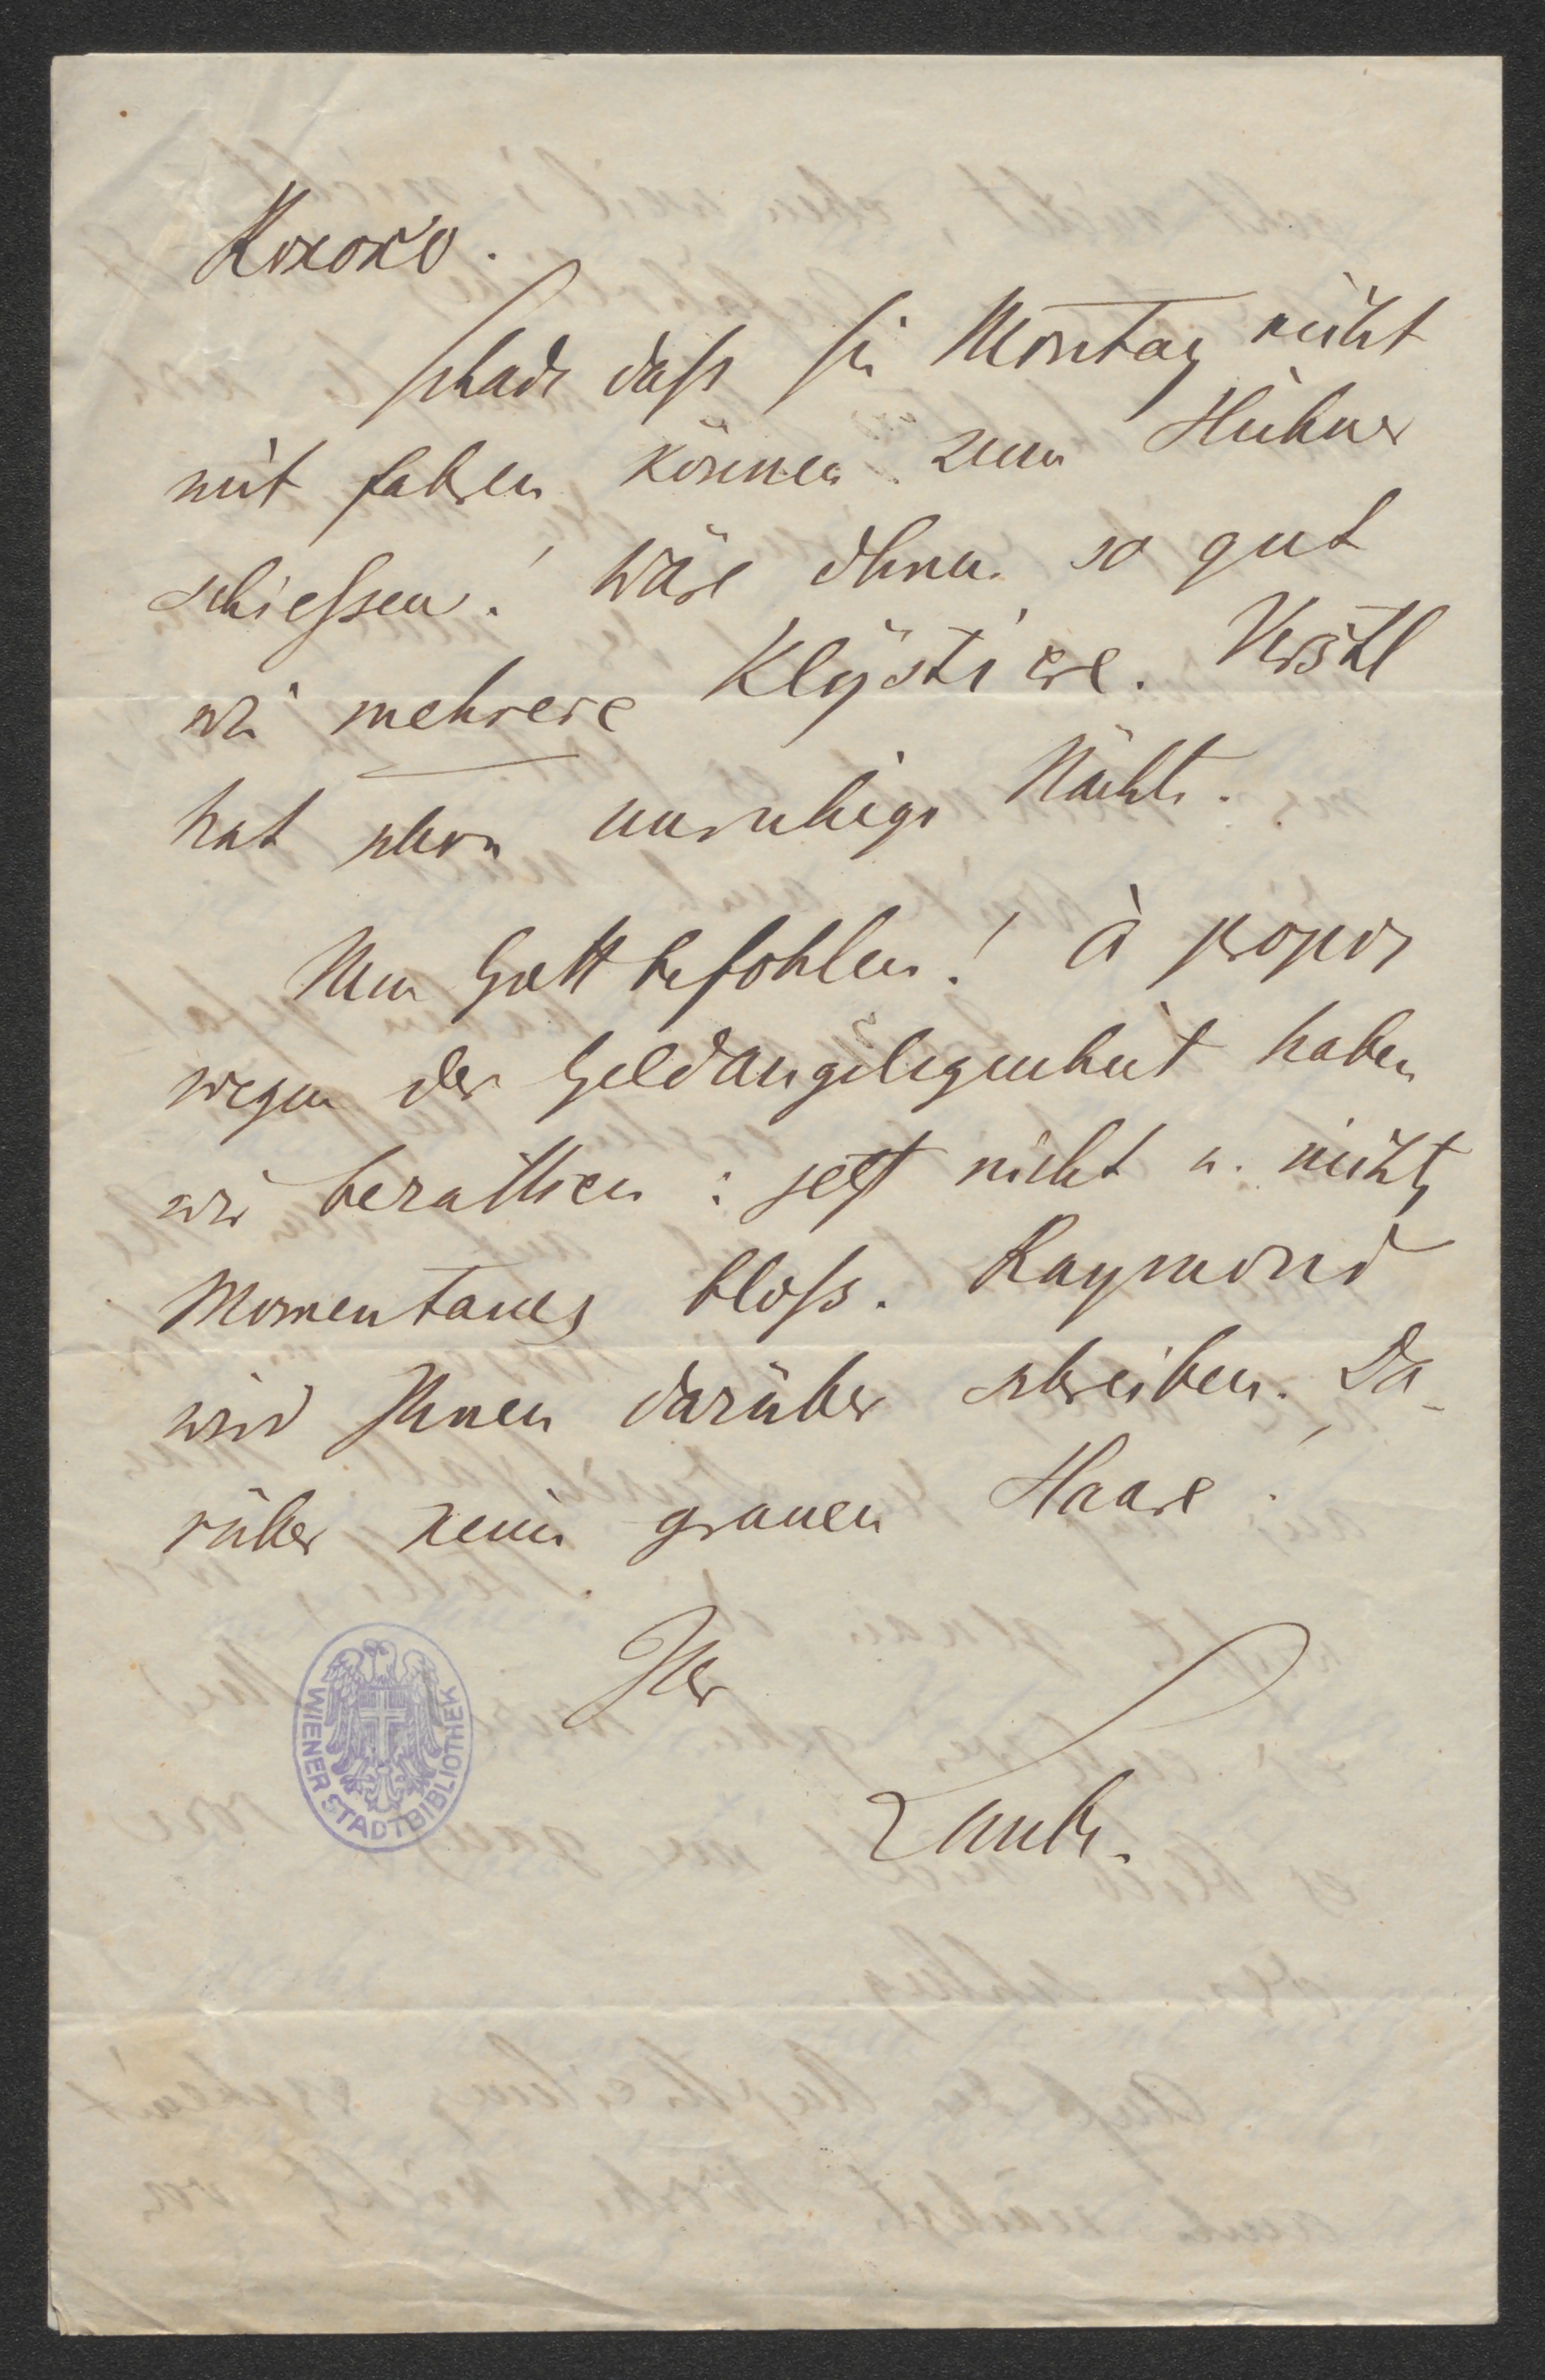 Rococo.
Schade daß Sie Montag nicht
mit fahren können zum Hühner
schießen! Wäre Ihnen so gut
wie mehrere Klystiere.
hat schon unruhige Nächte.
Nun Gott befohlen! à propos
wegen der Geldangelegenheit haben
wir berathen: jetzt nicht u. nichts
Momentanes bloß. Raymond
wird Ihnen darüber schreiben. Da-
rüber keine grauen Haare!
Ihr
Laube.
WIENER STADTBIBLIOTHEK